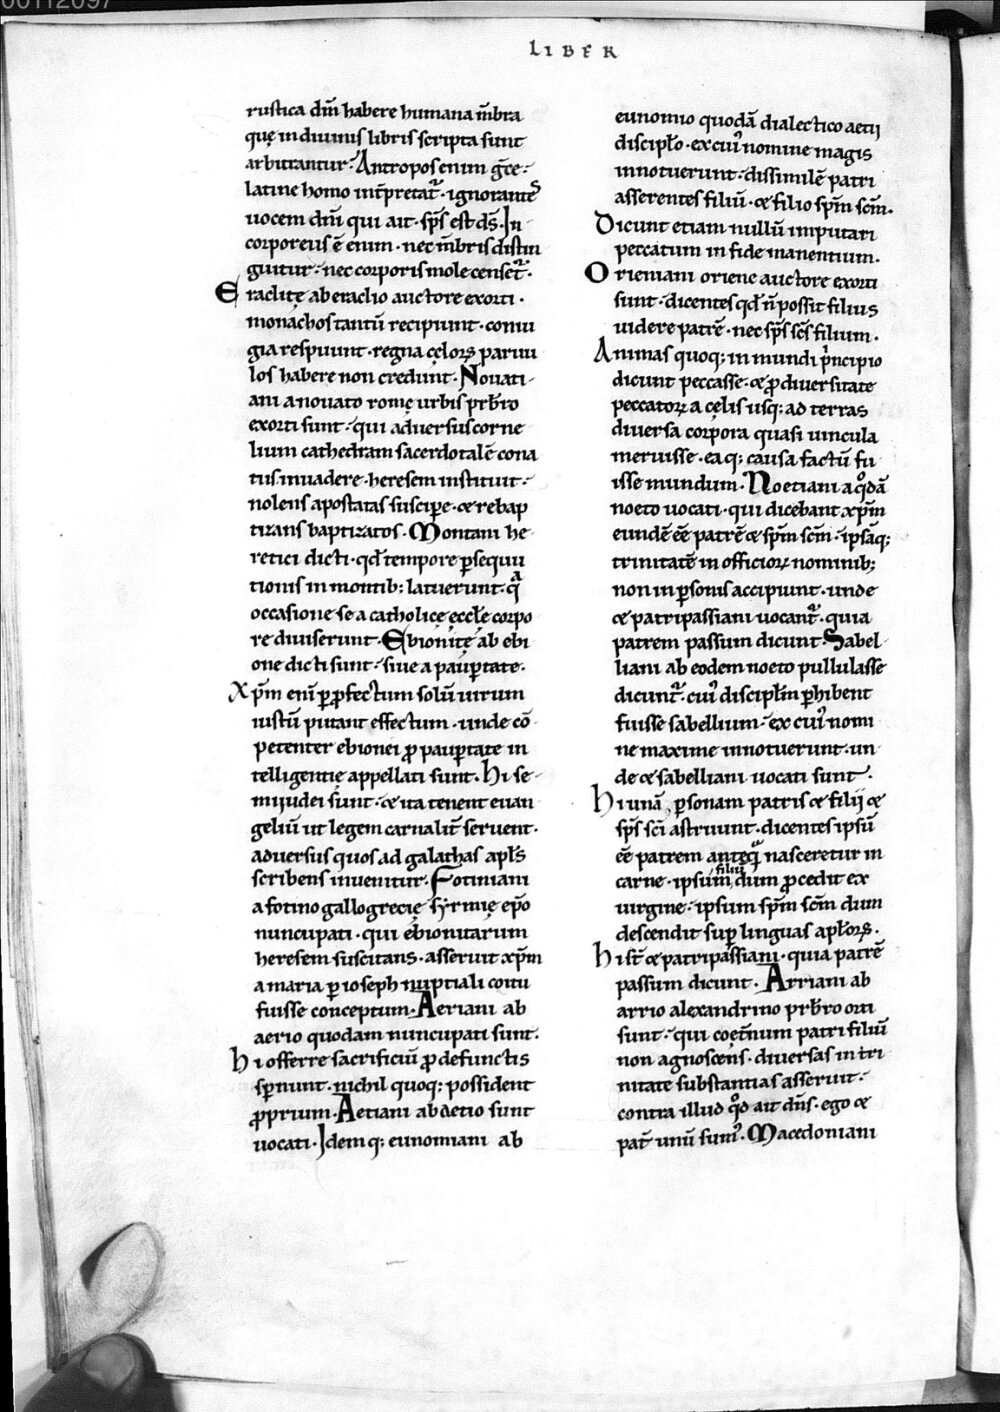 00112097
LIBER
rustica dm̄ habere humana m̄bra
quę in diuinis libris scripta sunt
arbitrantur. Antropos enim gr̄ce.
latine homo int̄pretat᷑. ignorantes
uocem dn̄i qui ait. sp̄s est ds̄. In
corporeus ē enim. nec m̄bris distin
guitur. nec corporis mole censet᷑.
Eraclitę ab eraclio auctore exorti.
monachos tantū recipiunt. coniu
gia respuunt. regna cęlorꝝ paruu
los habere non credunt. Nouati
ani a nouato romę urbis prb̄ro
exorti sunt. qui aduersus corne
lium cathedram sacerdotalē cona
tus inuadere. heresem instituit.
nolens apostatas suscipe. & rebap
tizans baptizatos. Montani he
retici dicti. qd̄ tempore ꝑsequu
tionis in montib; latuerunt. qͣ
occasione se a catholicę ęccłe corpo
re diuiserunt. Ebionitę ab ebi
one dicti sunt. siue a pauꝑtate.
Xp̄m eni ꝑ ꝓfectum solū uirum
iustū putant effectum. unde cō
petenter ebionei ꝓ pauꝑtate in
telligentię appellati sunt. Hi se
miiudei sunt. & ita tenent euan
geliū ut legem carnalit̄ seruent.
aduersus quos ad galathas apłs
scribens inuenitur. Fotiniani
a fotino gallogrecię syrmię ep̄o
nuncupati. qui ebionitarum
heresem suscitans. asseruit xp̄m
a maria ꝑ ioseph nuptiali coitu
fuisse conceptum. Aeriani ab
aerio quodam nuncupati sunt.
Hi offerre sacrificiū ꝓ defunctis
sꝑnunt. nichil quoq; possident
ꝓprium. Aetiani ab aetio sunt
uocati. Idemq; eunomiani ab
eunomio quodā dialectico aetij
discipło. ex cuiꝰ nomine magis
innotuerunt. dissimilē patri
asserentes filiū. & filio sp̄m scm̄.
Dicunt etiam nullū imputari
peccatum in fide manentium.
Oriemani oriene auctore exorti
sunt. dicentes qd̄ n̄ possit filius
uidere patrē. nec sp̄s scs̄ filium.
Animas quoq; in mundi pͥncipio
dicunt peccasse. & ꝓ diuersitate
peccatorꝝ a cęlis usq; ad terras
diuersa corpora quasi uincula
meruisse. eaq; causa factū fu
isse mundum. Noetiani a qͦdā
noeto uocati. qui dicebant xp̄m
eundē eē patrē & sp̄m scm̄. ipsāq;
trinitatē in officiorꝝ nominib;
non in ꝑsonis accipiunt. unde
& patripassiani uocant᷑. quia
patrem passum dicunt. Sabel
liani ab eodem noeto pullulasse
dicunt᷑. cuiꝰ discipłm ꝑhibent
fuisse sabellium. ex cuiꝰ nomi
ne maxime innotuerunt. un
de & sabelliani uocati sunt.
Hi unā ꝑsonam patris & filij &
sp̄s sc̄i astruunt. dicentes ipsū
eē patrem anteqͣ nasceretur in
filiū
carne. ipsum, dum ꝓcedit ex
uirgine. ipsum sp̄m scm̄ dum
descendit suꝑ linguas apłorꝝ.
Hi st̄ & patripassiani. quia patrē
passum dicunt. Arriani ab
arrio alexandrino prb̄ro orti
sunt. qui coet̄num patri filiū
non agnoscens. diuersas in tri
nitate substantias asseruit.
contra illud qͦd ait dn̄s. ego &
pat̄ unū sumꝰ. Macedoniani